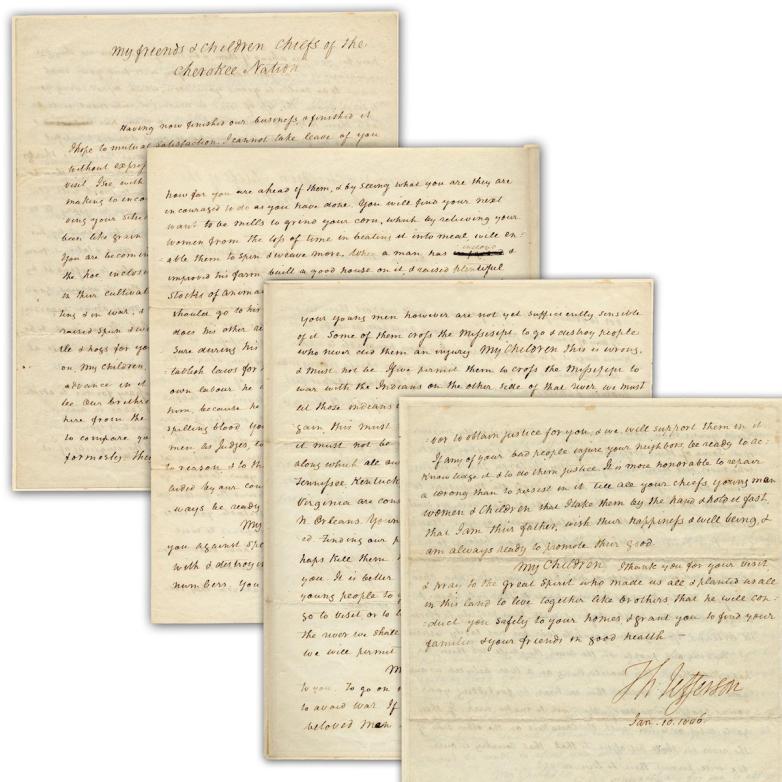 My friends & Children Chiefs of the
Cherokee Nation
Having now finished our business, & finished it
I hope to mutual satisfaction, I cannot take leave of you
without expres
visit. I see with
making to enco
ving your situa
been like grain
You are becomin
the hoe inclose
in their cultivat
ting & in war, &
raised spin & we
tle & hogs for yo
on, My Children
advance in it
lie. Our brothe
here from the
to compare yo
formerly. The
now for you are ahead of them, & by seeing what you are they are
encouraged to do as you have done. You will find your next
want to be mills to grind your corn, which by relieving your
women from the loss of time in beating it into meal will en-
able them to spin & weave more. When a man has inclosed &
improved his farm built a good house on it, & raised plentiful
stocks of anima
should go to his
does his other re
sure during his
tablish laws for
own labour he
him, because he
spilling blood. You
men as Judges, to
to reason & to th
luded by our cou
ways be ready
My
you against spe
with & destroyi
numbers. You
your young men however are not yet sufficiently sensible
of it. Some of them cross the Missisipi to go & destroy people
who never did them an injury. My Children this is wrong,
& must not be. If we permit them to cross the Missisipi to
war with the Indians on the other side of that river, we must
let those indians
gain this must
it must not be
along which all ou
Tennissee, Kentuck
Virginia are cons
N. Orleans. Youn
ed. Finding our p
haps kill them
you. It is better
young people to
go to visit or to
the river we shall
we will permit
M
to you. To go on
to avoid war. If
beloved Men
vor to obtain justice for you, & we will support them in it
If any of your bad people injure your neighbors, be ready to ac-
knowledge it, & to do them justice. It is more honorable to repair
a wrong than to persist in it. Tell all your chiefs, young men
women & Children that I take them by the hand & hold it fast,
that I am their father, wish their happiness & well being, &
am always ready to promote their good.
My Children, I thank you for your visit
& pray to the great Spirit who made us all & planted us all
in this land to live together like brothers that he will con-
duct you safely to your homes & grant you to find your
families & your friends in good health —
Th Jefferson
Jan. 10. 1806.